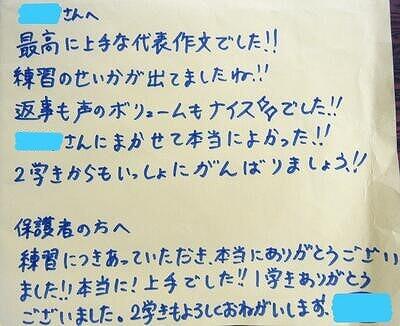 さんへ
最高に上手な代表作文でした!!
練習のせいかが出てましたね!!
返事も声のボリュームもナイスでした!!
さんにまかせて本当によかった!!
2学きからもいっしょにがんばりましょう!!
保護者の方へ
練習につきあっていただき、本当にありがとうござい
ました!!本当に!上手でした!!1学きありがとう
ございました。2学きもよろしくおねがいします。